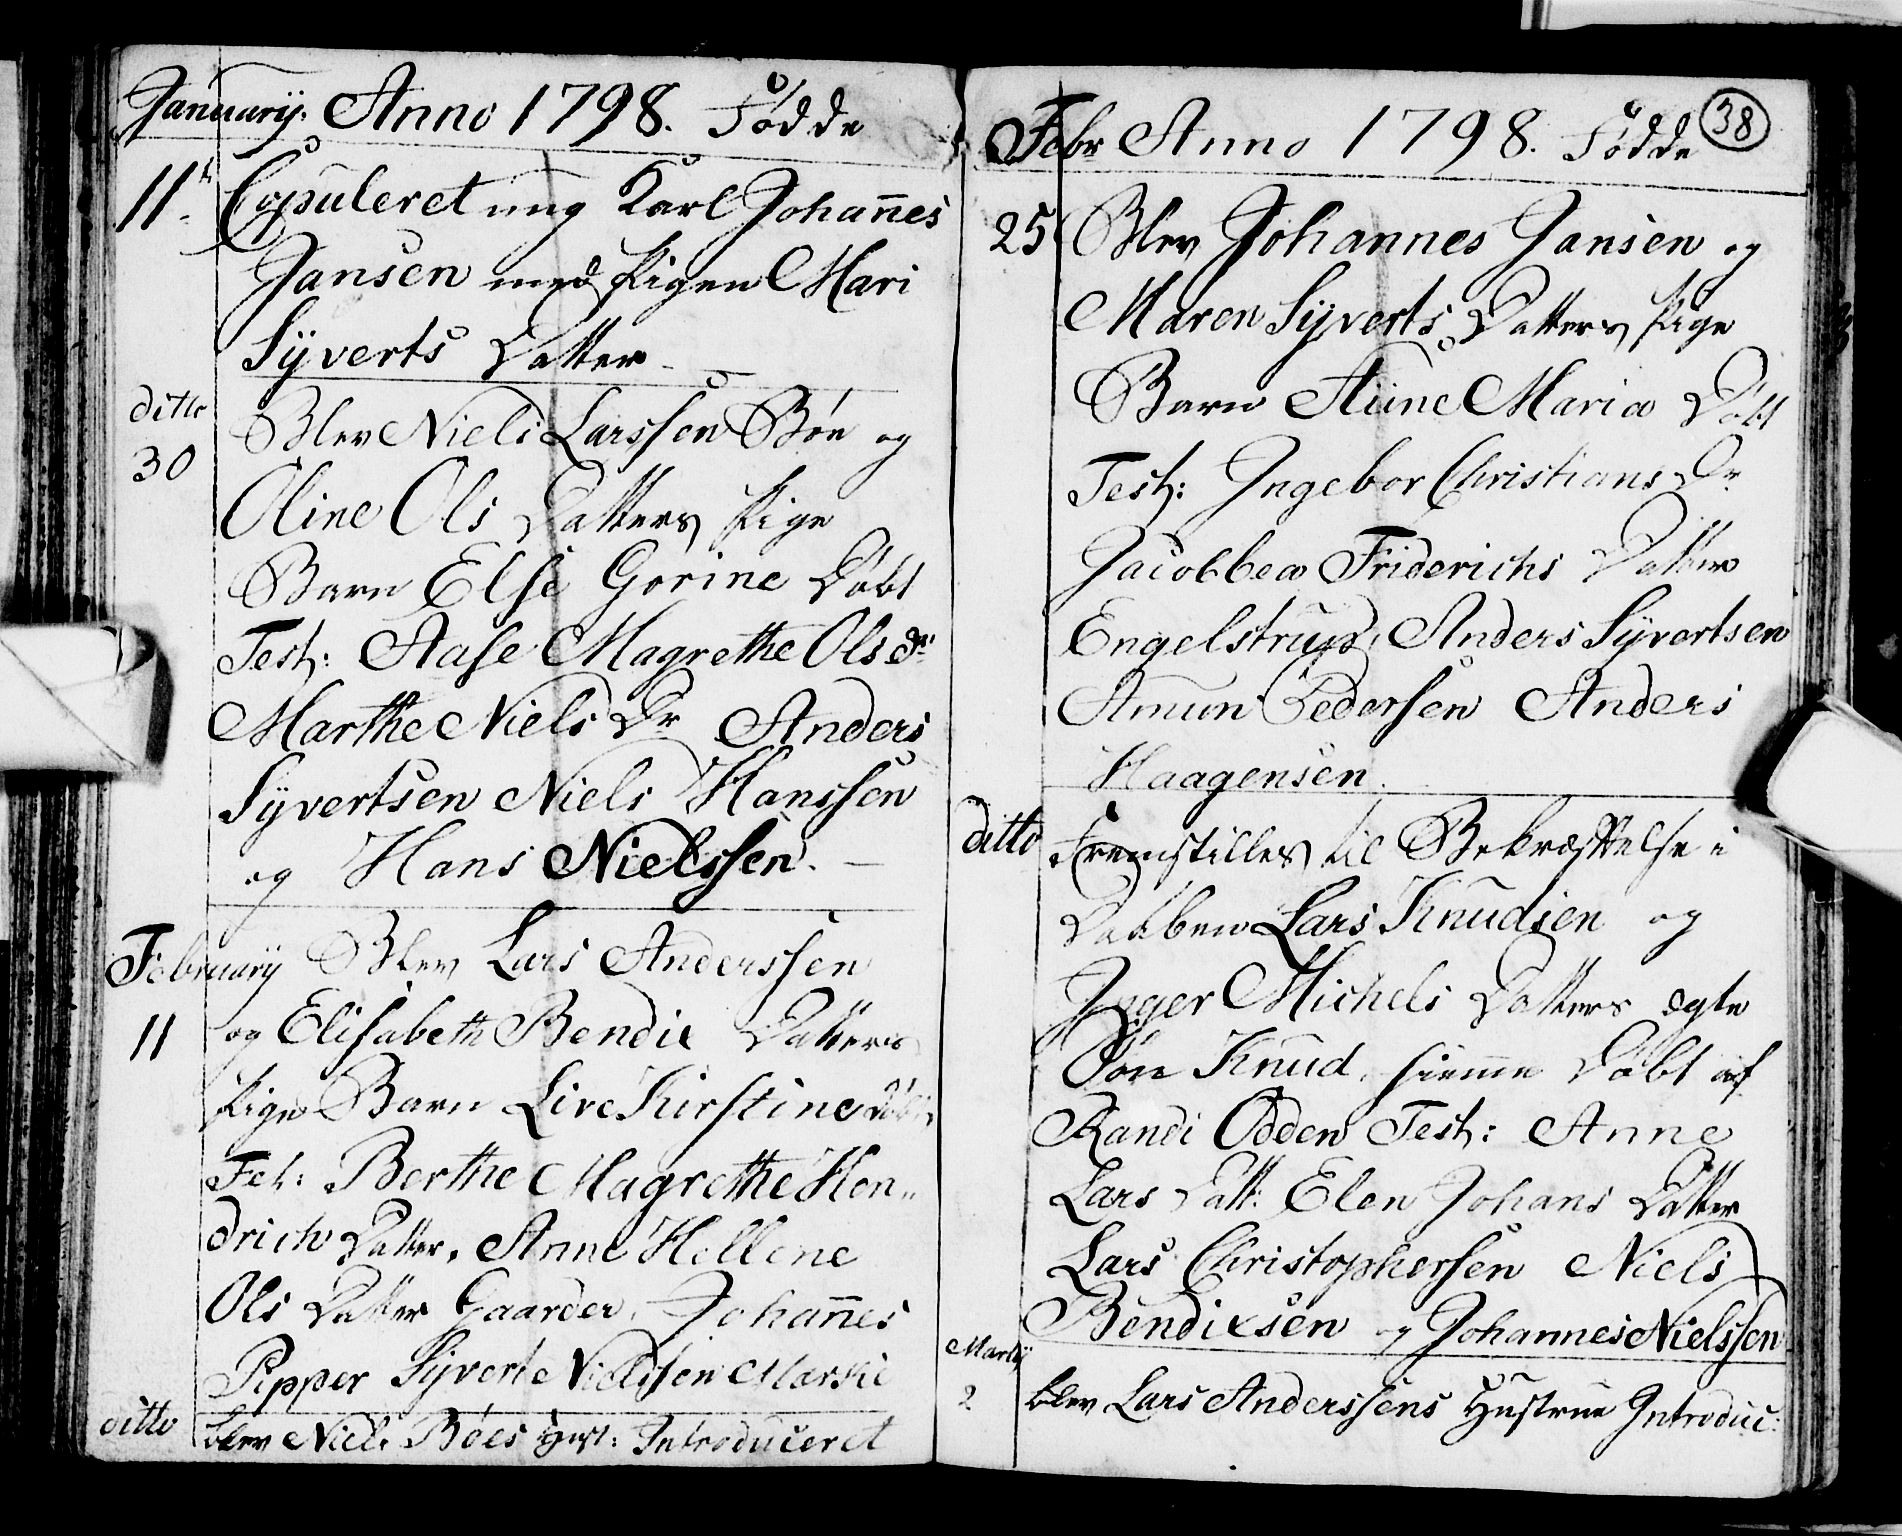 Januarÿ: Anno 1798. Födde
11te Copuleret ung Karl Johan̄es
Jansen med Pigen Mari
Syverts Datter
ditto Blev Niels Larssen Böe og
30 Oline Ols Datters Pige
Barn Else Gorine Döbt
Test: Aase Magrethe Ols dr
Marthe Niels Dr Anders
Syvertsen Niels Hanssen
og Hans Nielssen.
Februarÿ Blev Lars Anderssen
11 og Elisabeth Bendix Datters
Pige Barn Live Kirstine Döbt
Tet: Berthe Magrethe Hen„
drich Datter, Anne Hellene
Ols Datter Gaarder, Johan̄es
Pipper Syvert Nielssen
ditto blev Niels Böes Hust: Introduceret
38
Febr Anno 1798. Födde
25 Blev Johannes Jansen og
Maren Syverts Datters Pige
Barn Anne Maria Döbt
Test: Ingebor Christians Dr
Jacobbea Friderichs Datter
Engelstrud, Anders Syvertsen
Amun Pedersen Anders
Haagensen.
ditto Fremstilles til Bekræftelse i
Daaben Lars Knudsen og
Inger Michels Datters ægte
Sön Knud, hiemme Döbt af
Randi Odden Test: Anne
Lars Datt: Elen Johans Datter
Lars Christophersen Niels
Bendixsen og Johannes Nielssen
Martÿ
2 blev Lars Anderssens Hustrue Introduc: